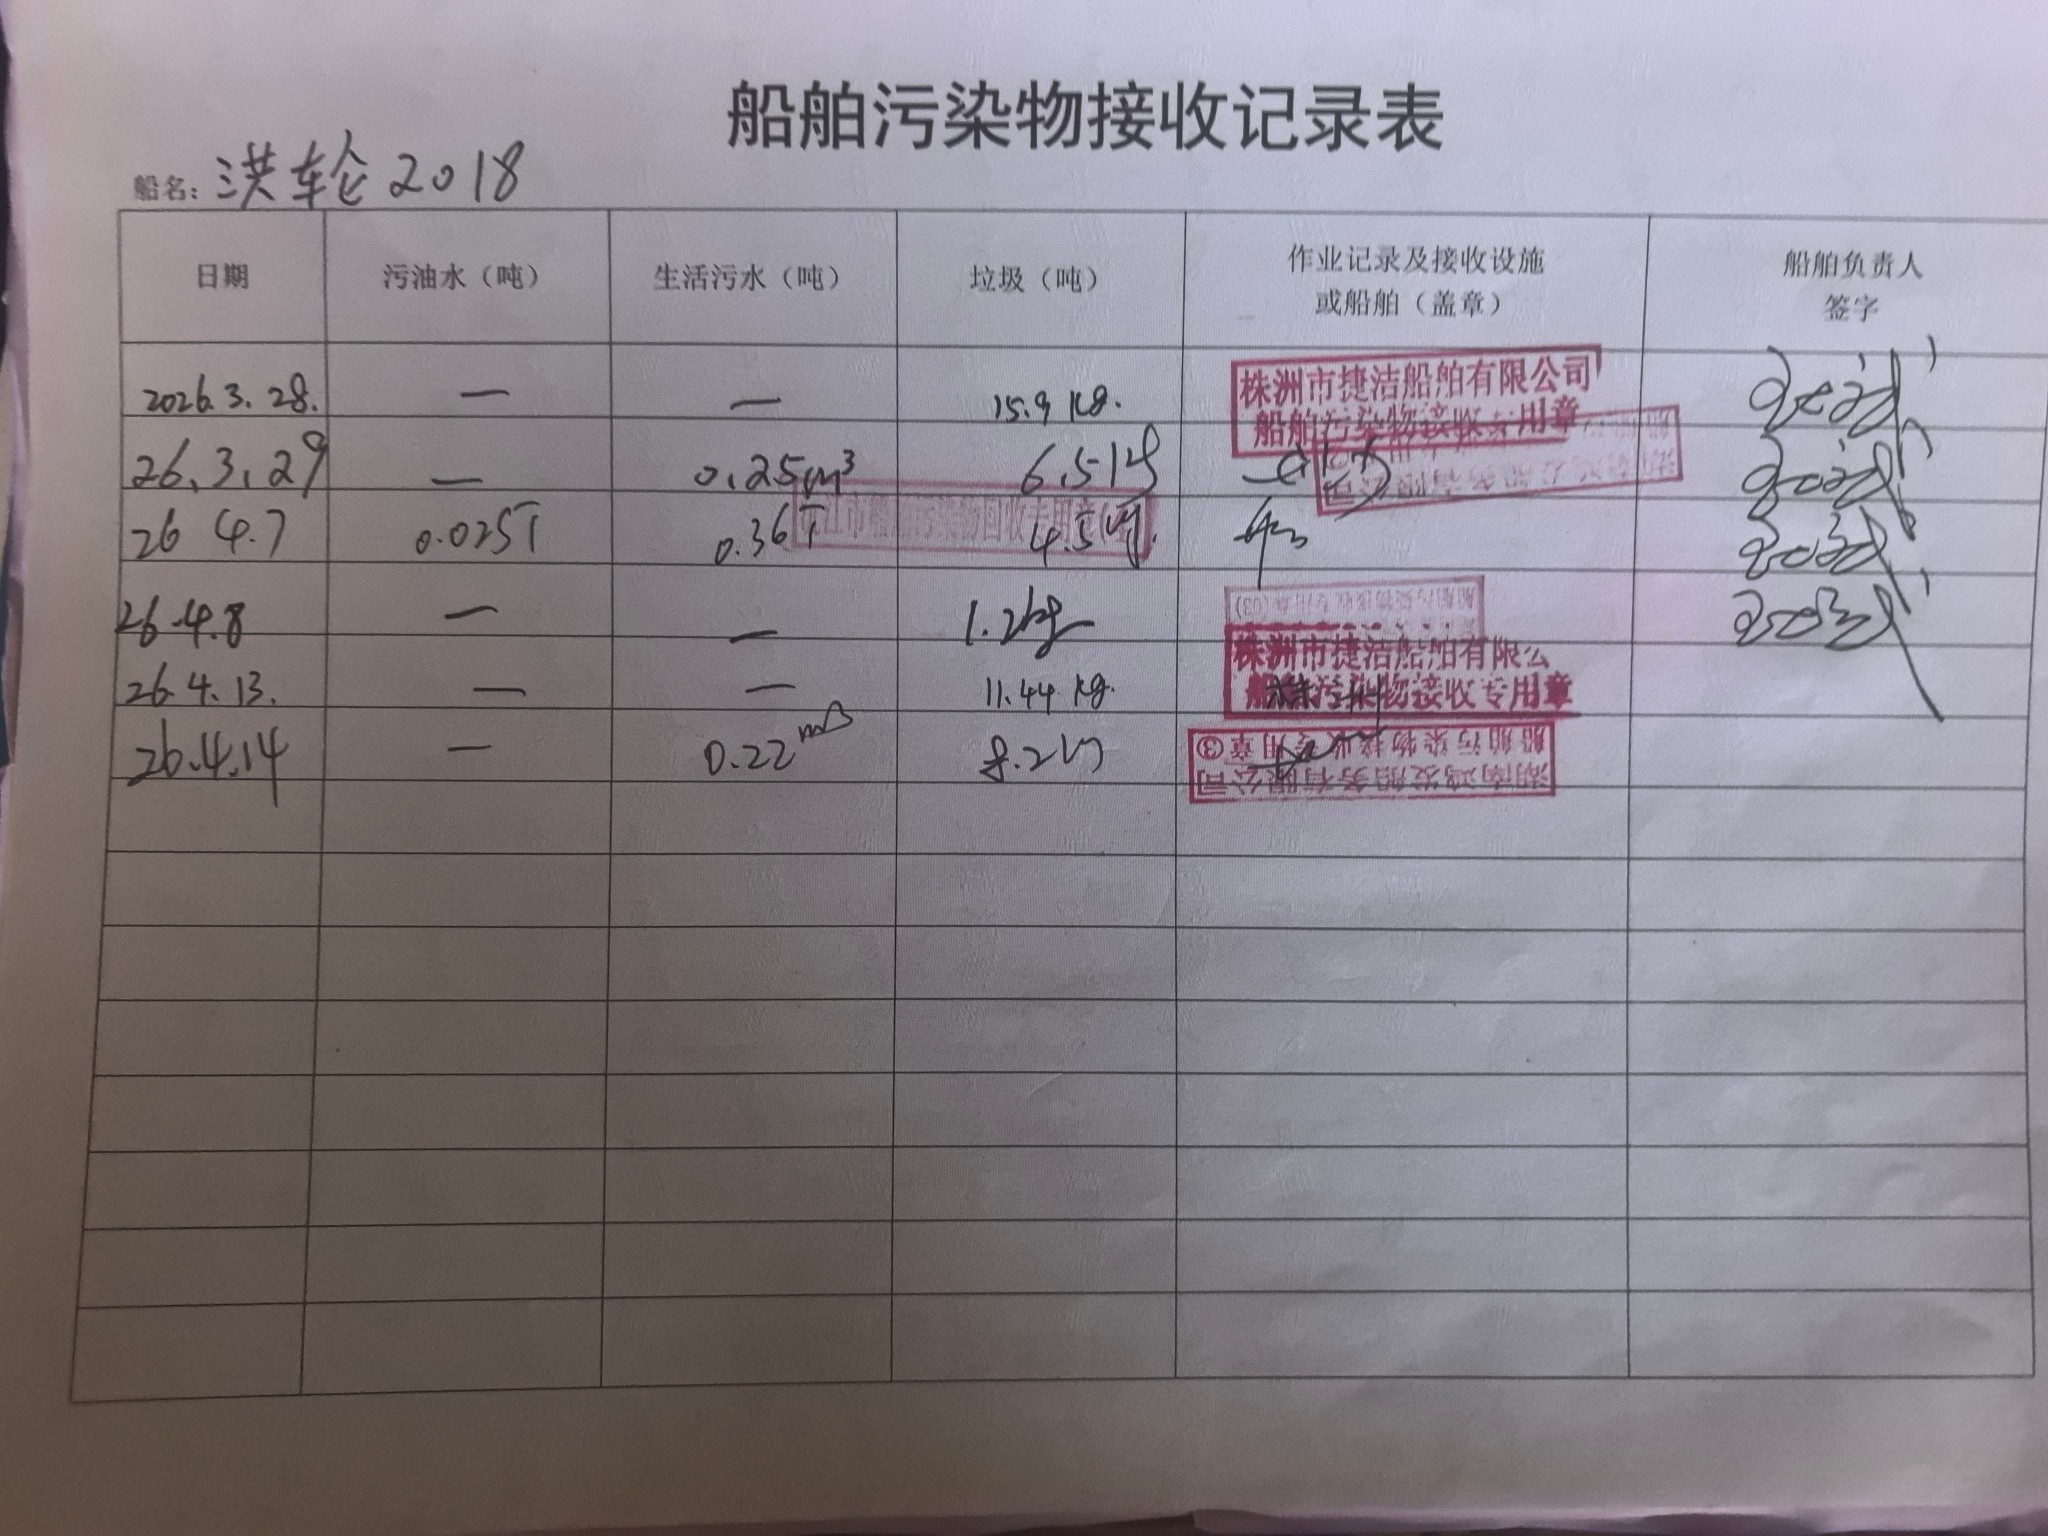 船舶污染物接收记录表
船名: 洪轮2018
日期 污油水（吨） 生活污水（吨） 垃圾（吨） 作业记录及接收设施或船舶（盖章） 船舶负责人签字
2026.3.28. — — 15.9 kg.
株洲市捷洁船舶有限公司
船舶污染物接收专用章
26.3.29 — 0.25m³ 6.5kg
26 4.7 0.025T 0.36T 4.5kg.
26.4.8 — — 1.2kg
船舶污染物接收专用章(03)
26.4.13. — — 11.44 kg.
株洲市捷洁船舶有限公
船舶污染物接收专用章
26.4.14 — 0.22m³ 8.2
湖南鸿发船务有限公司
船舶污染物接收专用章③